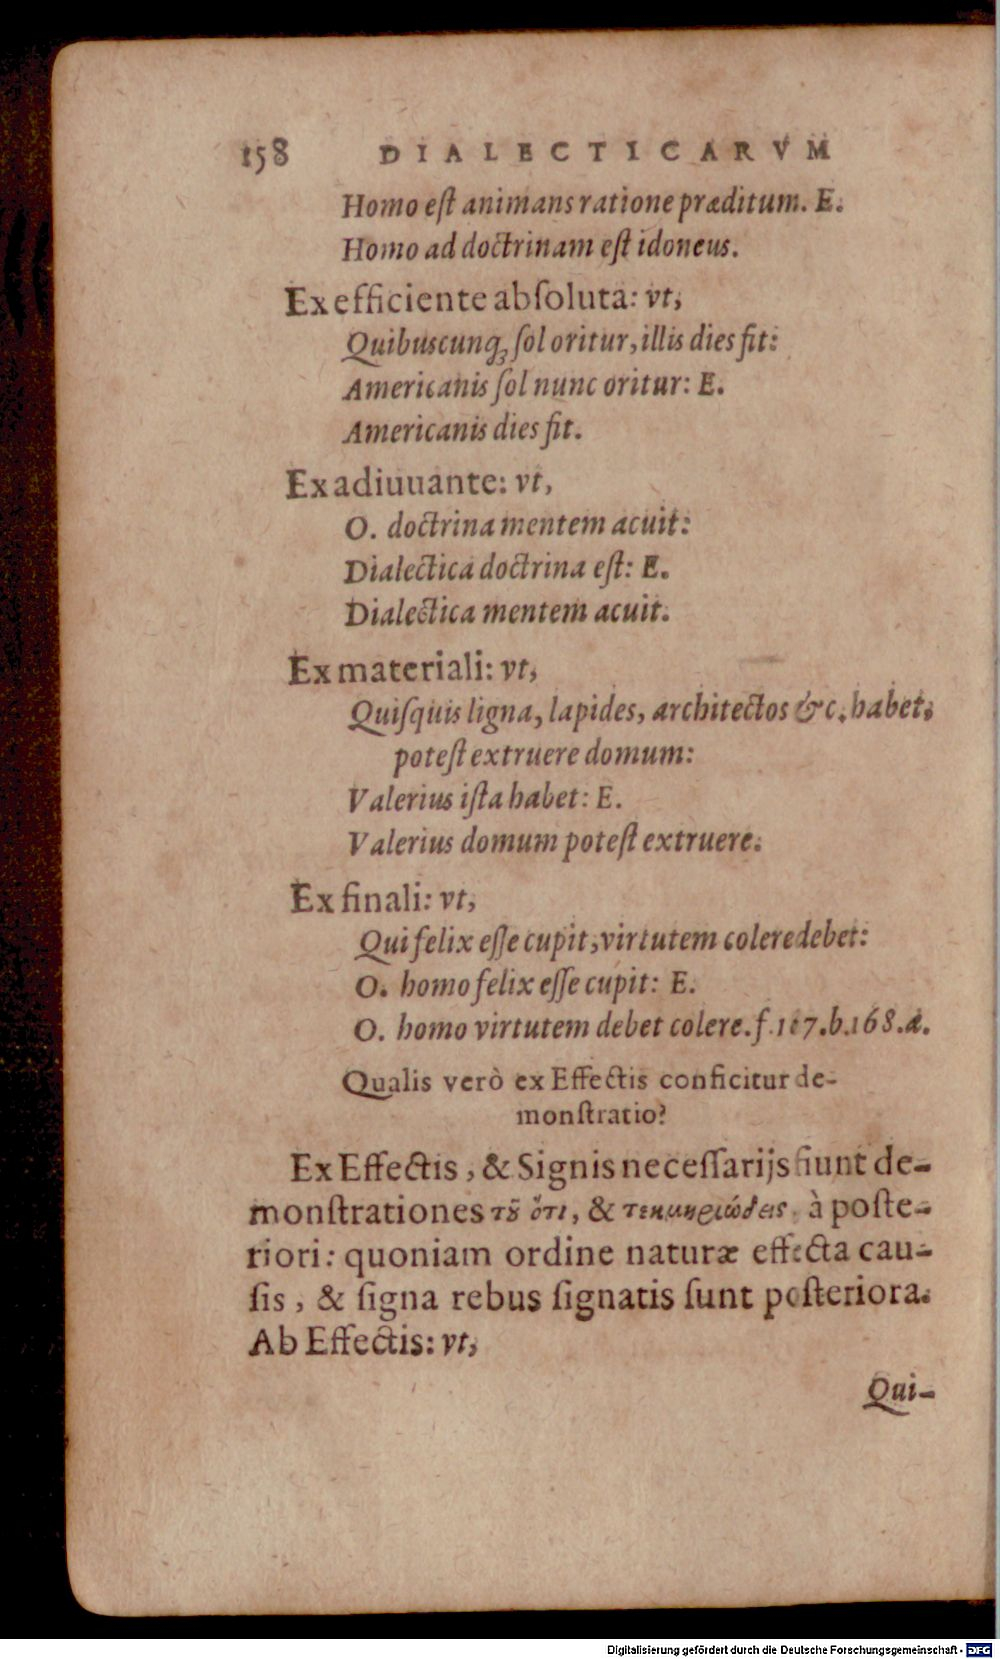 158 DIALECTICARVM
Homo eſt animans ratione præditum. E.
Homo ad doctrinam eſt idoneus.
Ex efficiente abſoluta: vt,
Quibuscunq; ſol oritur, illis dies fit:
Americanis ſol nunc oritur: E.
Americanis dies fit.
Ex adiuuante: vt,
O. doctrina mentem acuit:
Dialectica doctrina eſt: E.
Dialectica mentem acuit.
Ex materiali: vt,
Quiſquis ligna, lapides, architectos &c. habet,
poteſt extruere domum:
Valerius iſta habet: E.
Valerius domum poteſt extruere.
Ex finali: vt,
Qui felix eſſe cupit, virtutem colere debet:
O. homo felix eſſe cupit: E.
O. homo virtutem debet colere. f. 167. b. 168. a.
Qualis verò ex Effectis conficitur de-
monſtratio?
Ex Effectis, & Signis neceſſarijs fiunt de-
monſtrationes τȣ͂ ὅτι, & τεκμηριώδεις, à poſte-
riori: quoniam ordine naturæ effecta cau-
ſis, & ſigna rebus ſignatis ſunt poſteriora.
Ab Effectis: vt,
Qui-
Digitalisierung gefördert durch die Deutsche Forschungsgemeinschaft - DFG